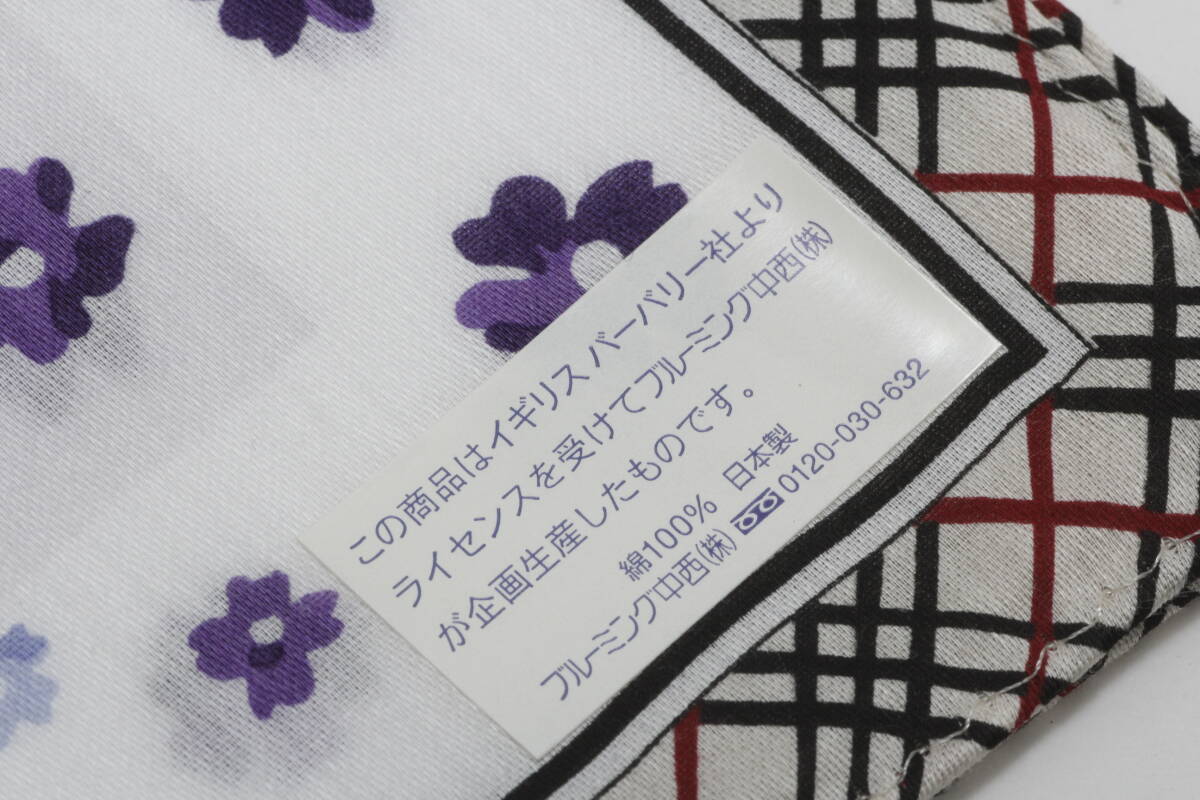 この商品はイギリス バーバリー社より
ライセンスを受けてブルーミング中西(株)
が企画生産したものです。
綿100% 日本製
ブルーミング中西(株) 0120-030-632